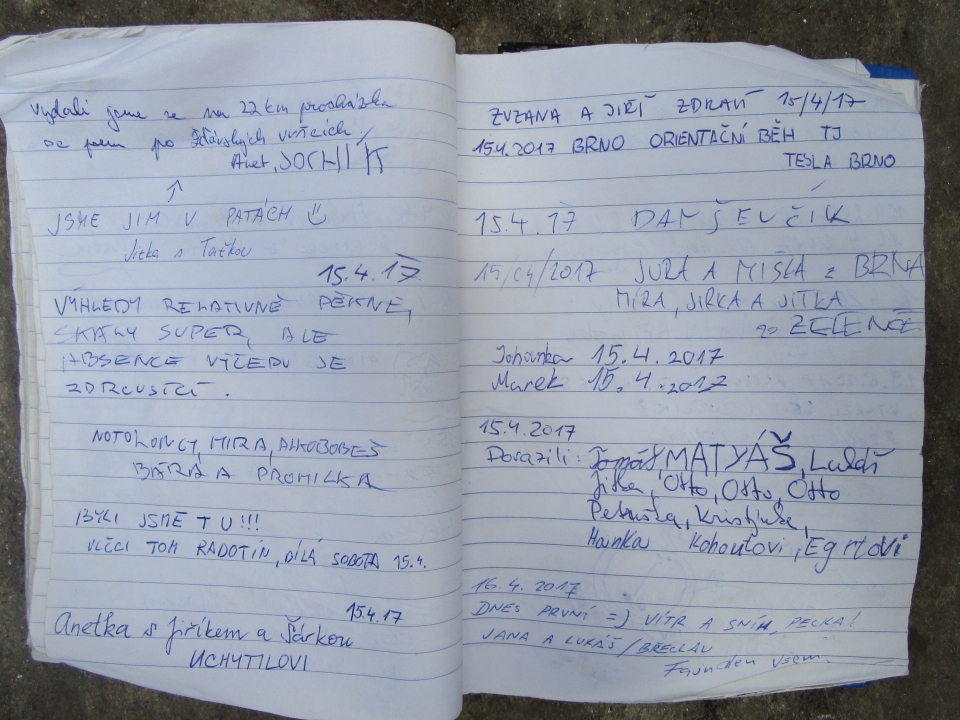 Vydali jsme se na 22 km procházku
se psem po Žďárských vršcích.
Anet, JOCHÍK
↑
JSME JIM V PATÁCH
Jitka s Taťkou
15.4.17
VÝHLEDY RELATIVNĚ PĚKNÉ,
SKÁLY SUPER, ALE
ABSENCE VÝČEPU JE
ZDRCUJÍCÍ.
NOTOLOVCI, MIRA, ALKOBOBEŠ
BÁRA A PROMILKA
BYLI JSME TU!!!
VLČCI TOM RADOTÍN, BÍLÁ SOBOTA 15.4.
15.4.17
Anetka s Jiříkem a Šárkou
UCHYTILOVI
ZUZANA A JIŘÍ ZDRAVÍ 15/4/17
15.4.2017 BRNO ORIENTAČNÍ BĚH TJ
TESLA BRNO
15.4.17 DAN ŠEVČÍK
15/04/2017 JURA A MIŠLA z BRNA
MÍRA, JIRKA A JITKA
ZE ZELENČE
Johanka 15.4.2017
Marek 15.4.2017
15.4.2017
Dorazili: Tomáš, MATYÁŠ, Luděk
Jitka, Otto, Otto, Otto
Petruška, Kristýnka,
Hanka Kohoutovi, Egrtovi
16.4.2017
DNES PRVNÍ =) VÍTR A SNÍH, PECKA!
JANA A LUKÁŠ / BŘECLAV
Fajn den všem.